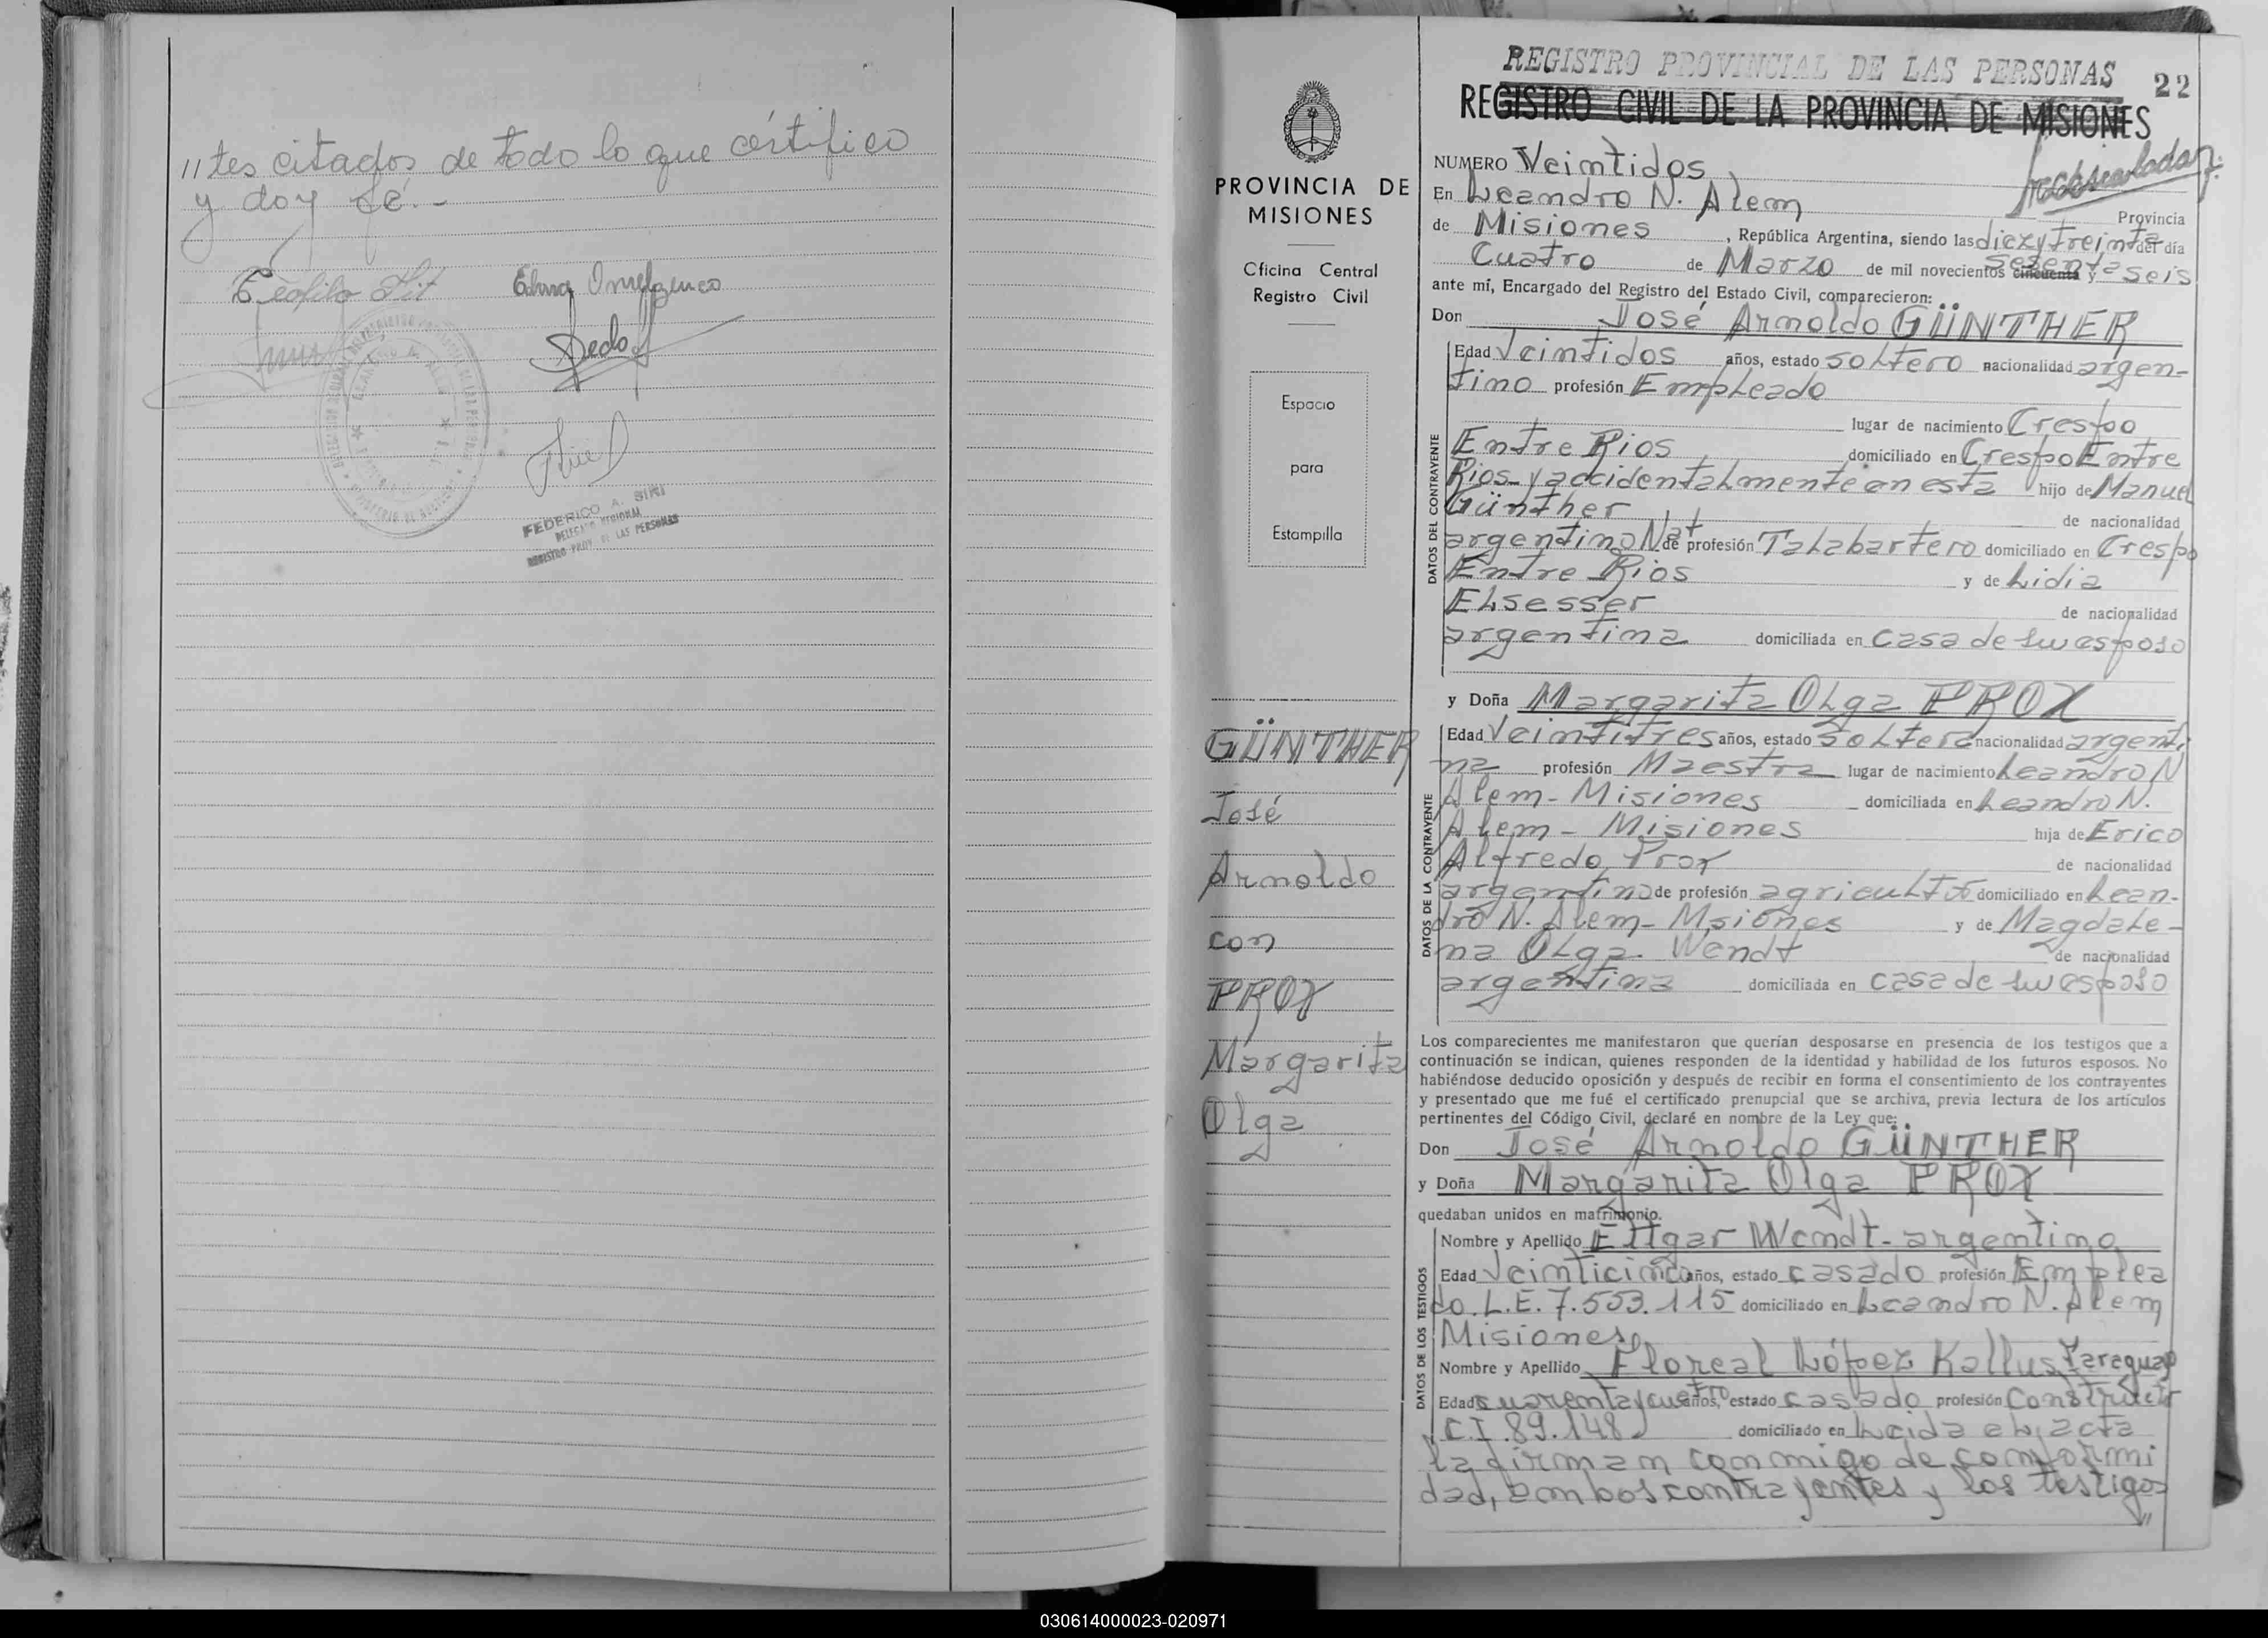 "tes citados de todo lo que cértifico
y doy fé.-
Teofilo Lit
FEDERICO A. SIRI
DELEGADO REGIONAL
REGISTRO PROV. DE LAS PERSONAS
PROVINCIA DE
MISIONES
Oficina Central
Registro Civil
Espacio
para
Estampilla
GÜNTHER
José
Arnoldo
con
PROX
Margarita
Olga
REGISTRO PROVINCIAL DE LAS PERSONAS
22
REGISTRO CIVIL DE LA PROVINCIA DE MISIONES
NUMERO Veintidos
En Leandro N. Alem Provincia
de Misiones, República Argentina, siendo las diez y treinta del día
Cuatro de Marzo de mil novecientos cincuenta sesenta y seis
ante mí, Encargado del Registro del Estado Civil, comparecieron:
Don José Arnoldo GÜNTHER
DATOS DEL CONTRAYENTE
Edad Veintidos años, estado soltero nacionalidad argen-
tino profesión Empleado
lugar de nacimiento Crespo
Entre Rios domiciliado en Crespo Entre
Rios-y accidentalmente en esta hijo de Manuel
Günther de nacionalidad
argentino Nat de profesión Talabartero domiciliado en Crespo
Entre Rios y de Lidia
Elsesser de nacionalidad
argentina domiciliada en casa de su esposo
y Doña Margarita Olga PROX
DATOS DE LA CONTRAYENTE
Edad Veintitres años, estado soltera nacionalidad argenti
na profesión Maestra lugar de nacimiento Leandro N
Alem-Misiones domiciliada en Leandro N.
Alem - Misiones hija de Erico
Alfredo Prox de nacionalidad
argentino de profesión agricultor domiciliado en Lean-
dro N. Alem-Misiones y de Magdale-
na Olga. Wendt de nacionalidad
argentina domiciliada en casa de su esposo
Los comparecientes me manifestaron que querían desposarse en presencia de los testigos que a
continuación se indican, quienes responden de la identidad y habilidad de los futuros esposos. No
habiéndose deducido oposición y después de recibir en forma el consentimiento de los contrayentes
y presentado que me fué el certificado prenupcial que se archiva, previa lectura de los artículos
pertinentes del Código Civil, declaré en nombre de la Ley que:
Don José Arnoldo GÜNTHER
y Doña Margarita Olga PROX
quedaban unidos en matrimonio.
DATOS DE LOS TESTIGOS
Nombre y Apellido Edgar Wendt-argentino
Edad Veinticinco años, estado casado profesión Emplea
do.L.E.7.553.115 domiciliado en Leandro N. Alem
Misiones
Nombre y Apellido Floreal López Kallus Paraguay
Edad cuarenta y cuatro años, estado casado profesión Constructor
C.I.89.148 domiciliado en Leida el acta
la firman conmigo de conformi
dad, ambos contrayentes y los testigos
"
030614000023-020971